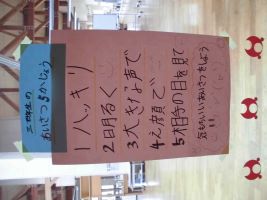 三年生の
あいさつ5かじょう
1ハッキリ
2明るく
3大きな声で
4え顔で
5相手の目を見て
気もちいいあいさつをしよう